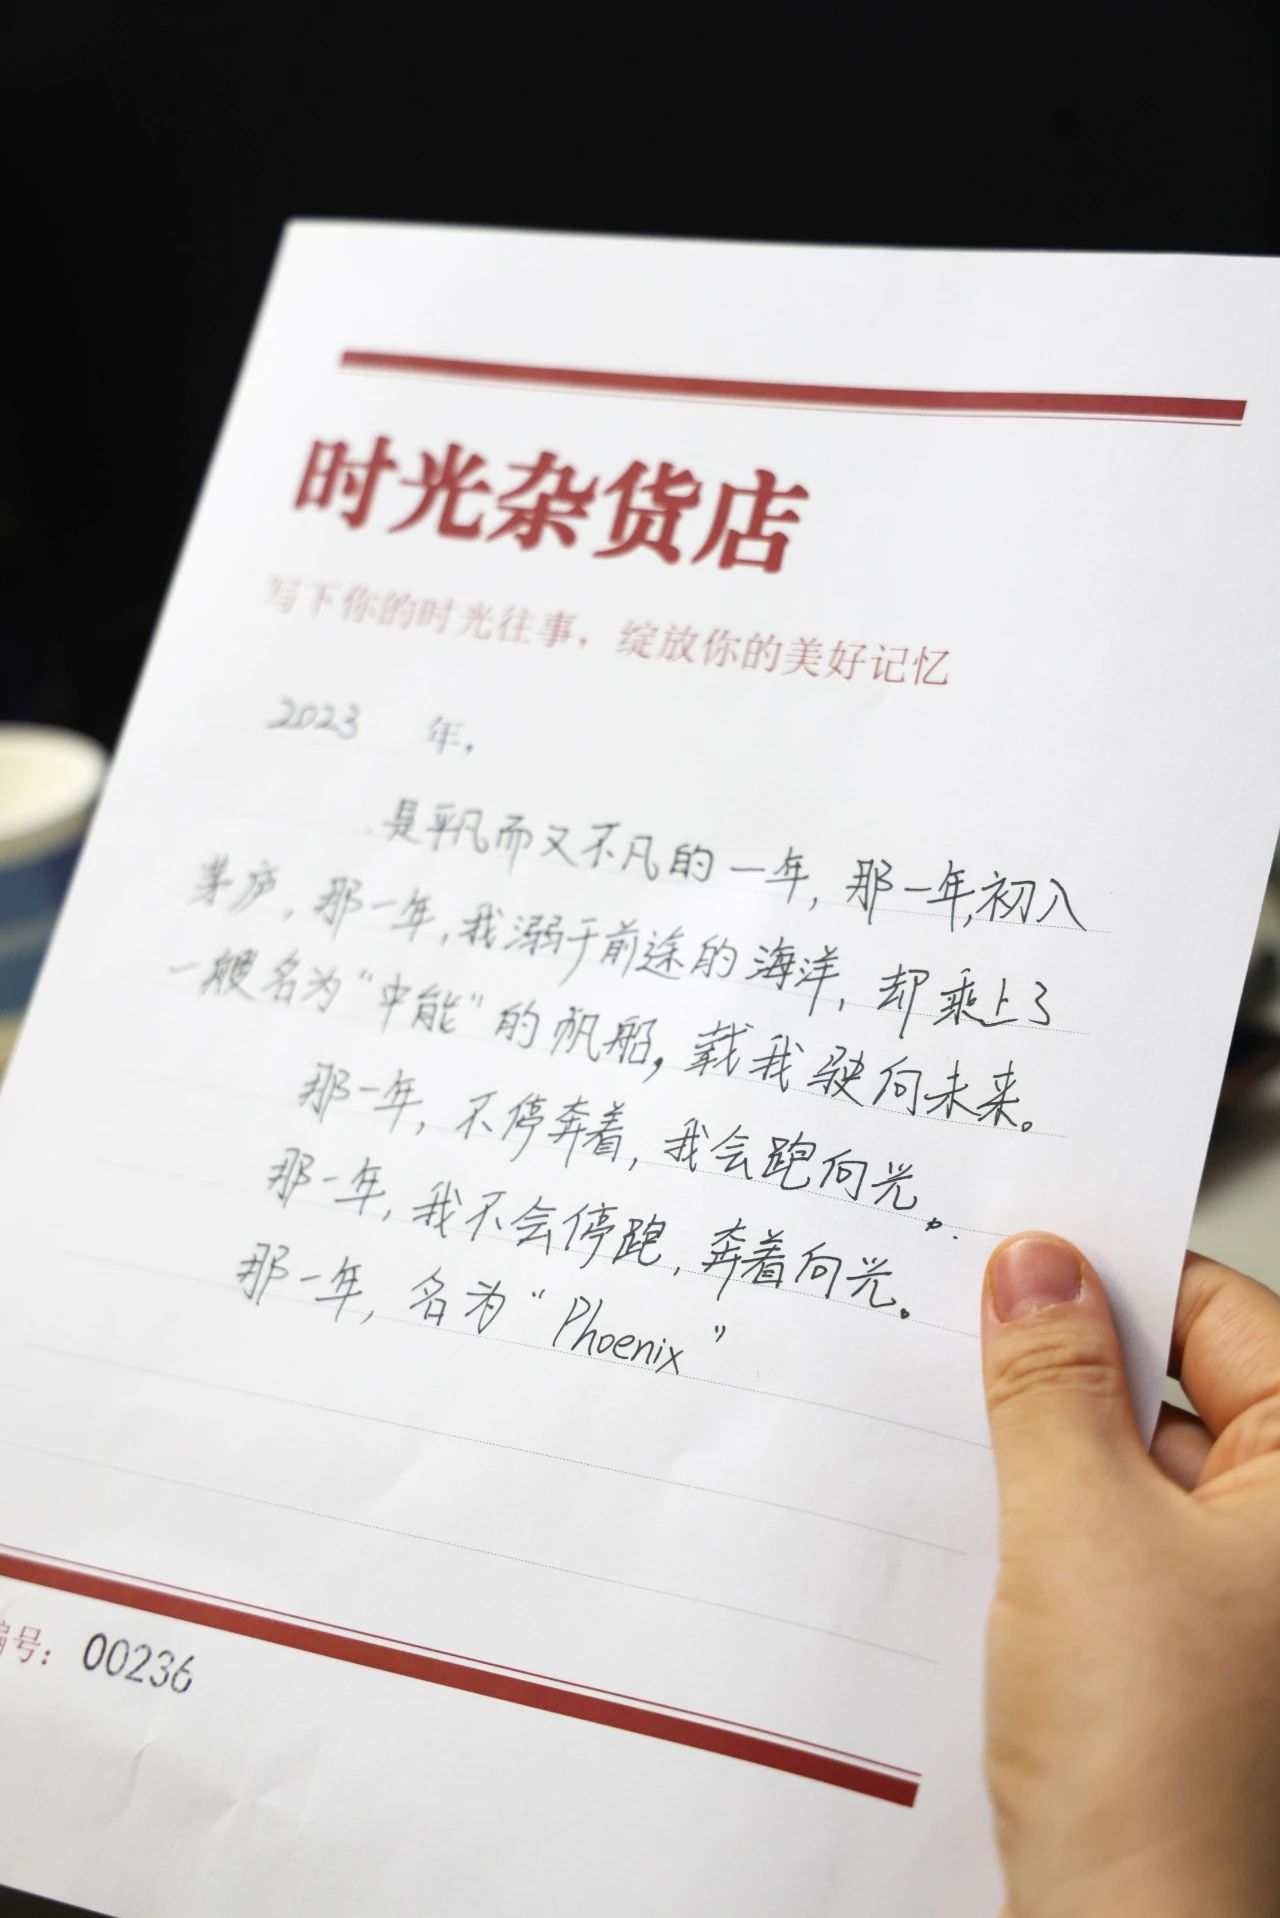 时光杂货店
写下你的时光往事，绽放你的美好记忆
2023 年，
是平凡而又不凡的一年，那一年，初入
茅庐，那一年，我溺于前途的海洋，却乘上了
一艘名为“中能”的帆船，载我驶向未来。
那一年，不停奔着，我会跑向光。
那一年，我不会停跑，奔着向光。
那一年，名为“Phoenix”
编号：00236